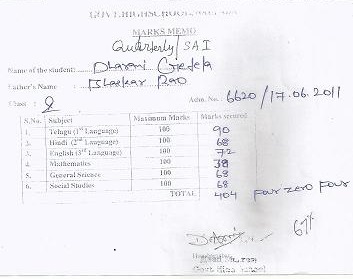 GOVT.HIGHSCHOOL,
MARKS MEMO
Quarterly/SAI
Name of the student: Dharani Giedela
Father's Name : Bhaskar Rao
Class : 8 Adm. No. : 6620/17.06.2011
S.No. Subject Maximum Marks Marks secured
1. Telugu (1st Language) 100 90
2. Hindi (2nd Language) 100 68
3. English (3rd Language) 100 72
4. Mathematics 100 38
5. General Science 100 68
6. Social Studies 100 68
TOTAL 404 four zero four
67%